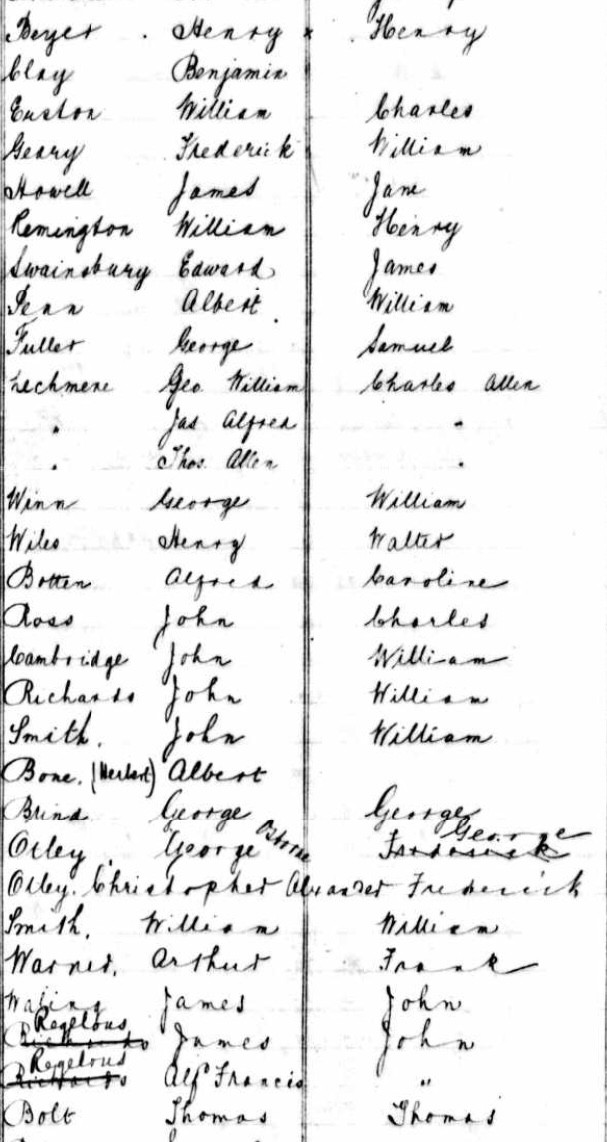 Beyer . Henry x . Henry
Clay Benjamin
Euston William Charles
Geary Frederick William
Howell James Jane
Remington William Henry
Swainsbury Edward James
Penn Albert William
Fuller George Samuel
Lechmere Geo. William Charles Allen
" Jas Alfred "
" Thos. Allen "
Winn George William
Wiles Henry Walter
Botten Alfred Caroline
Ross John Charles
Cambridge John William
Richards John William
Smith. John William
Bone. (Herbert) Albert
Brind George George
Otley. George Osborne Frederick George
Otley. Christopher Alexander Frederick
Smith. William William
Warner. Arthur Frank
James John
Richards Regelous James John
Richards Regelous Alf Francis "
Bolt Thomas Thomas